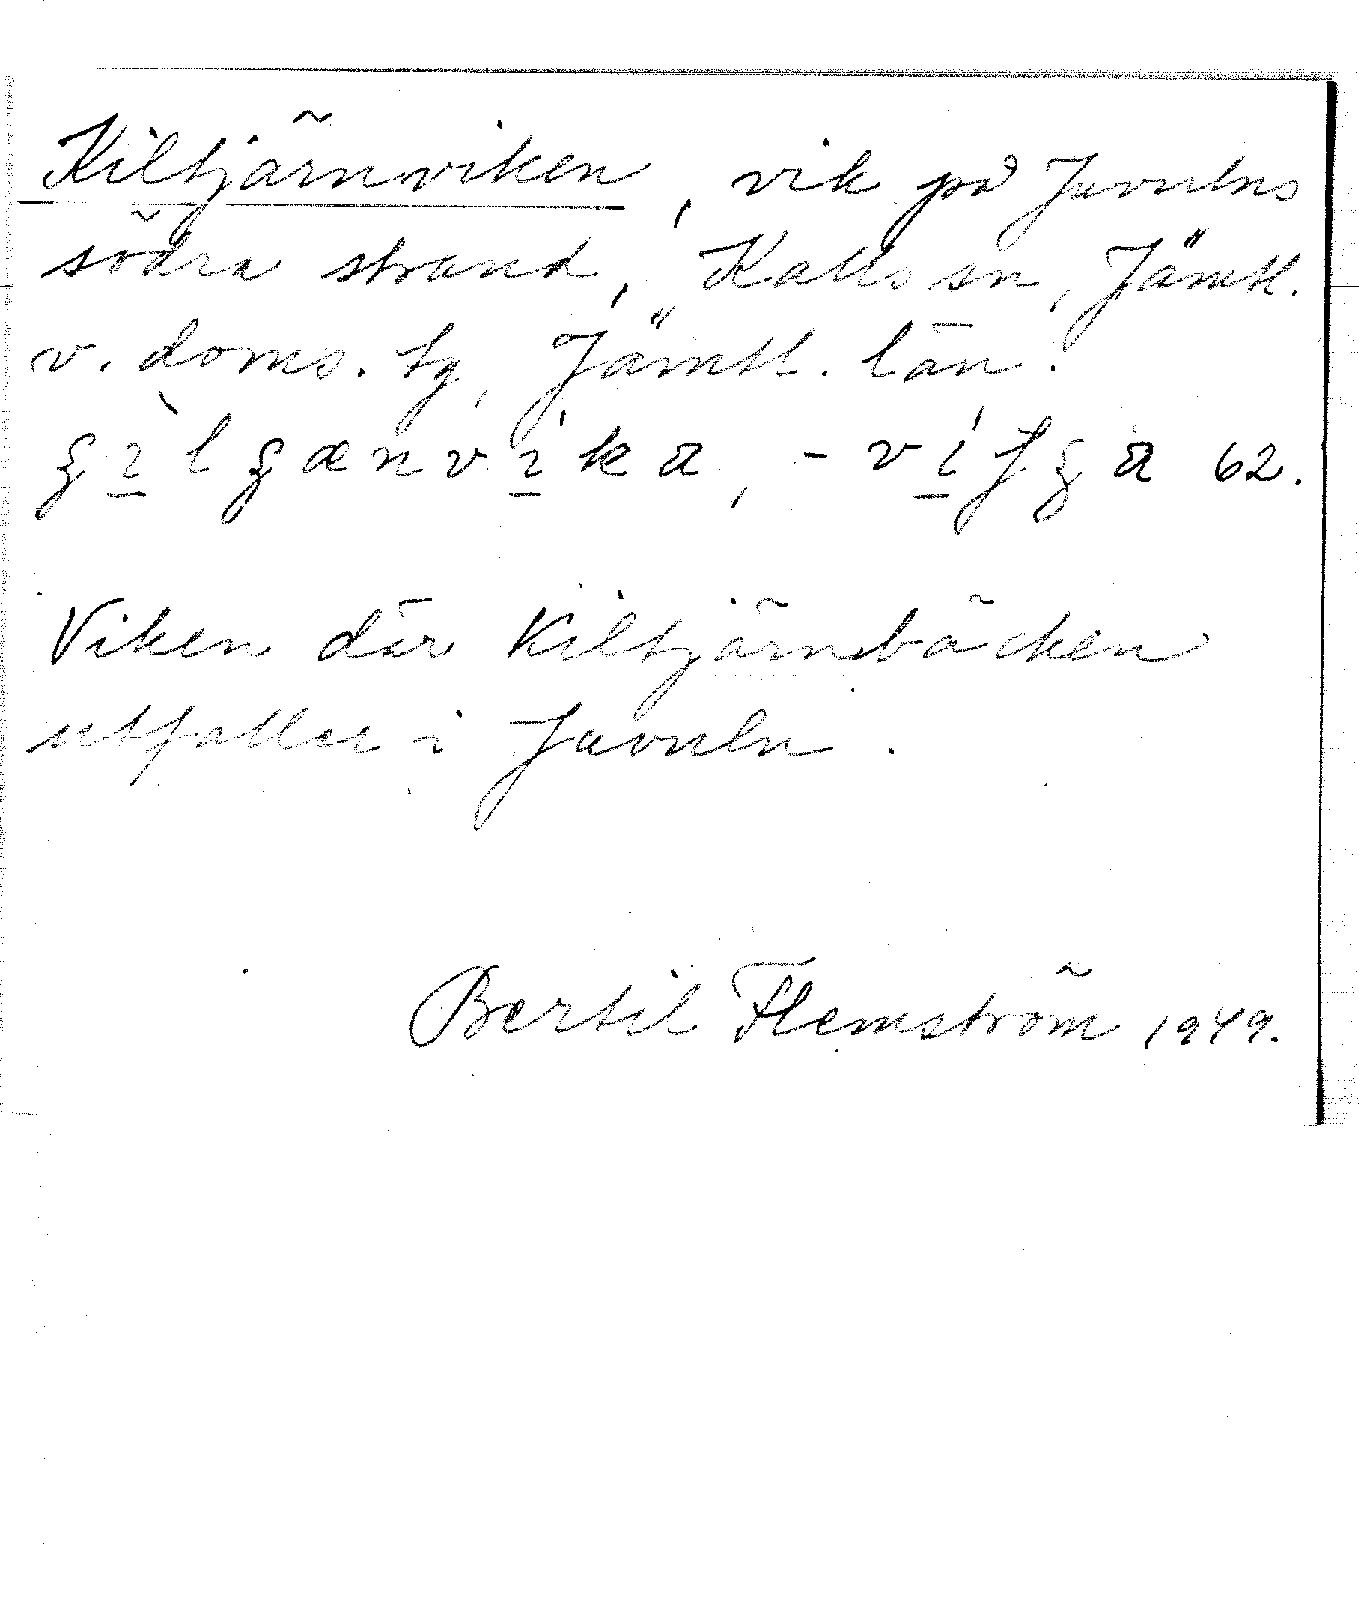 Kiltjärnviken, vik på Juvulns
södra strand, Kalls sn, Jämtl.
v. doms. tg, Jämtl. län.
vika, - 62.
Viken där Kiltjärnbäcken
utfaller i Juvuln.
Bertil Flemström 1949.